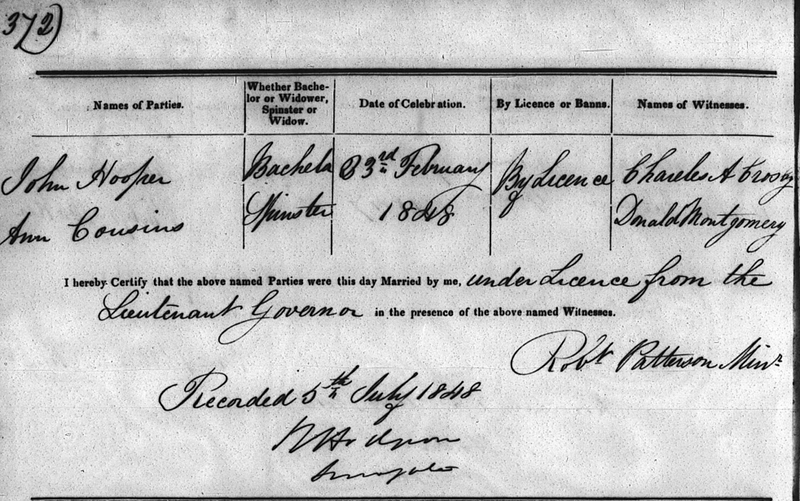 372)
Names of Parties.
Whether Bache-
lor or Widower,
Spinster or
Widow.
Date of Celebration.
By Licence or Banns.
Names of Witnesses.
John Hooper
Bachelor
23rd February
By Licence
Charles A Crosby
Ann Cousins
Spinster
1848
Donald Montgomery
I hereby Certify that the above named Parties were this day Married by me, under Licence from the
Lieutenant Governor in the presence of the above named Witnesses.
Robt Patterson Minr
Recorded 5th July 1848